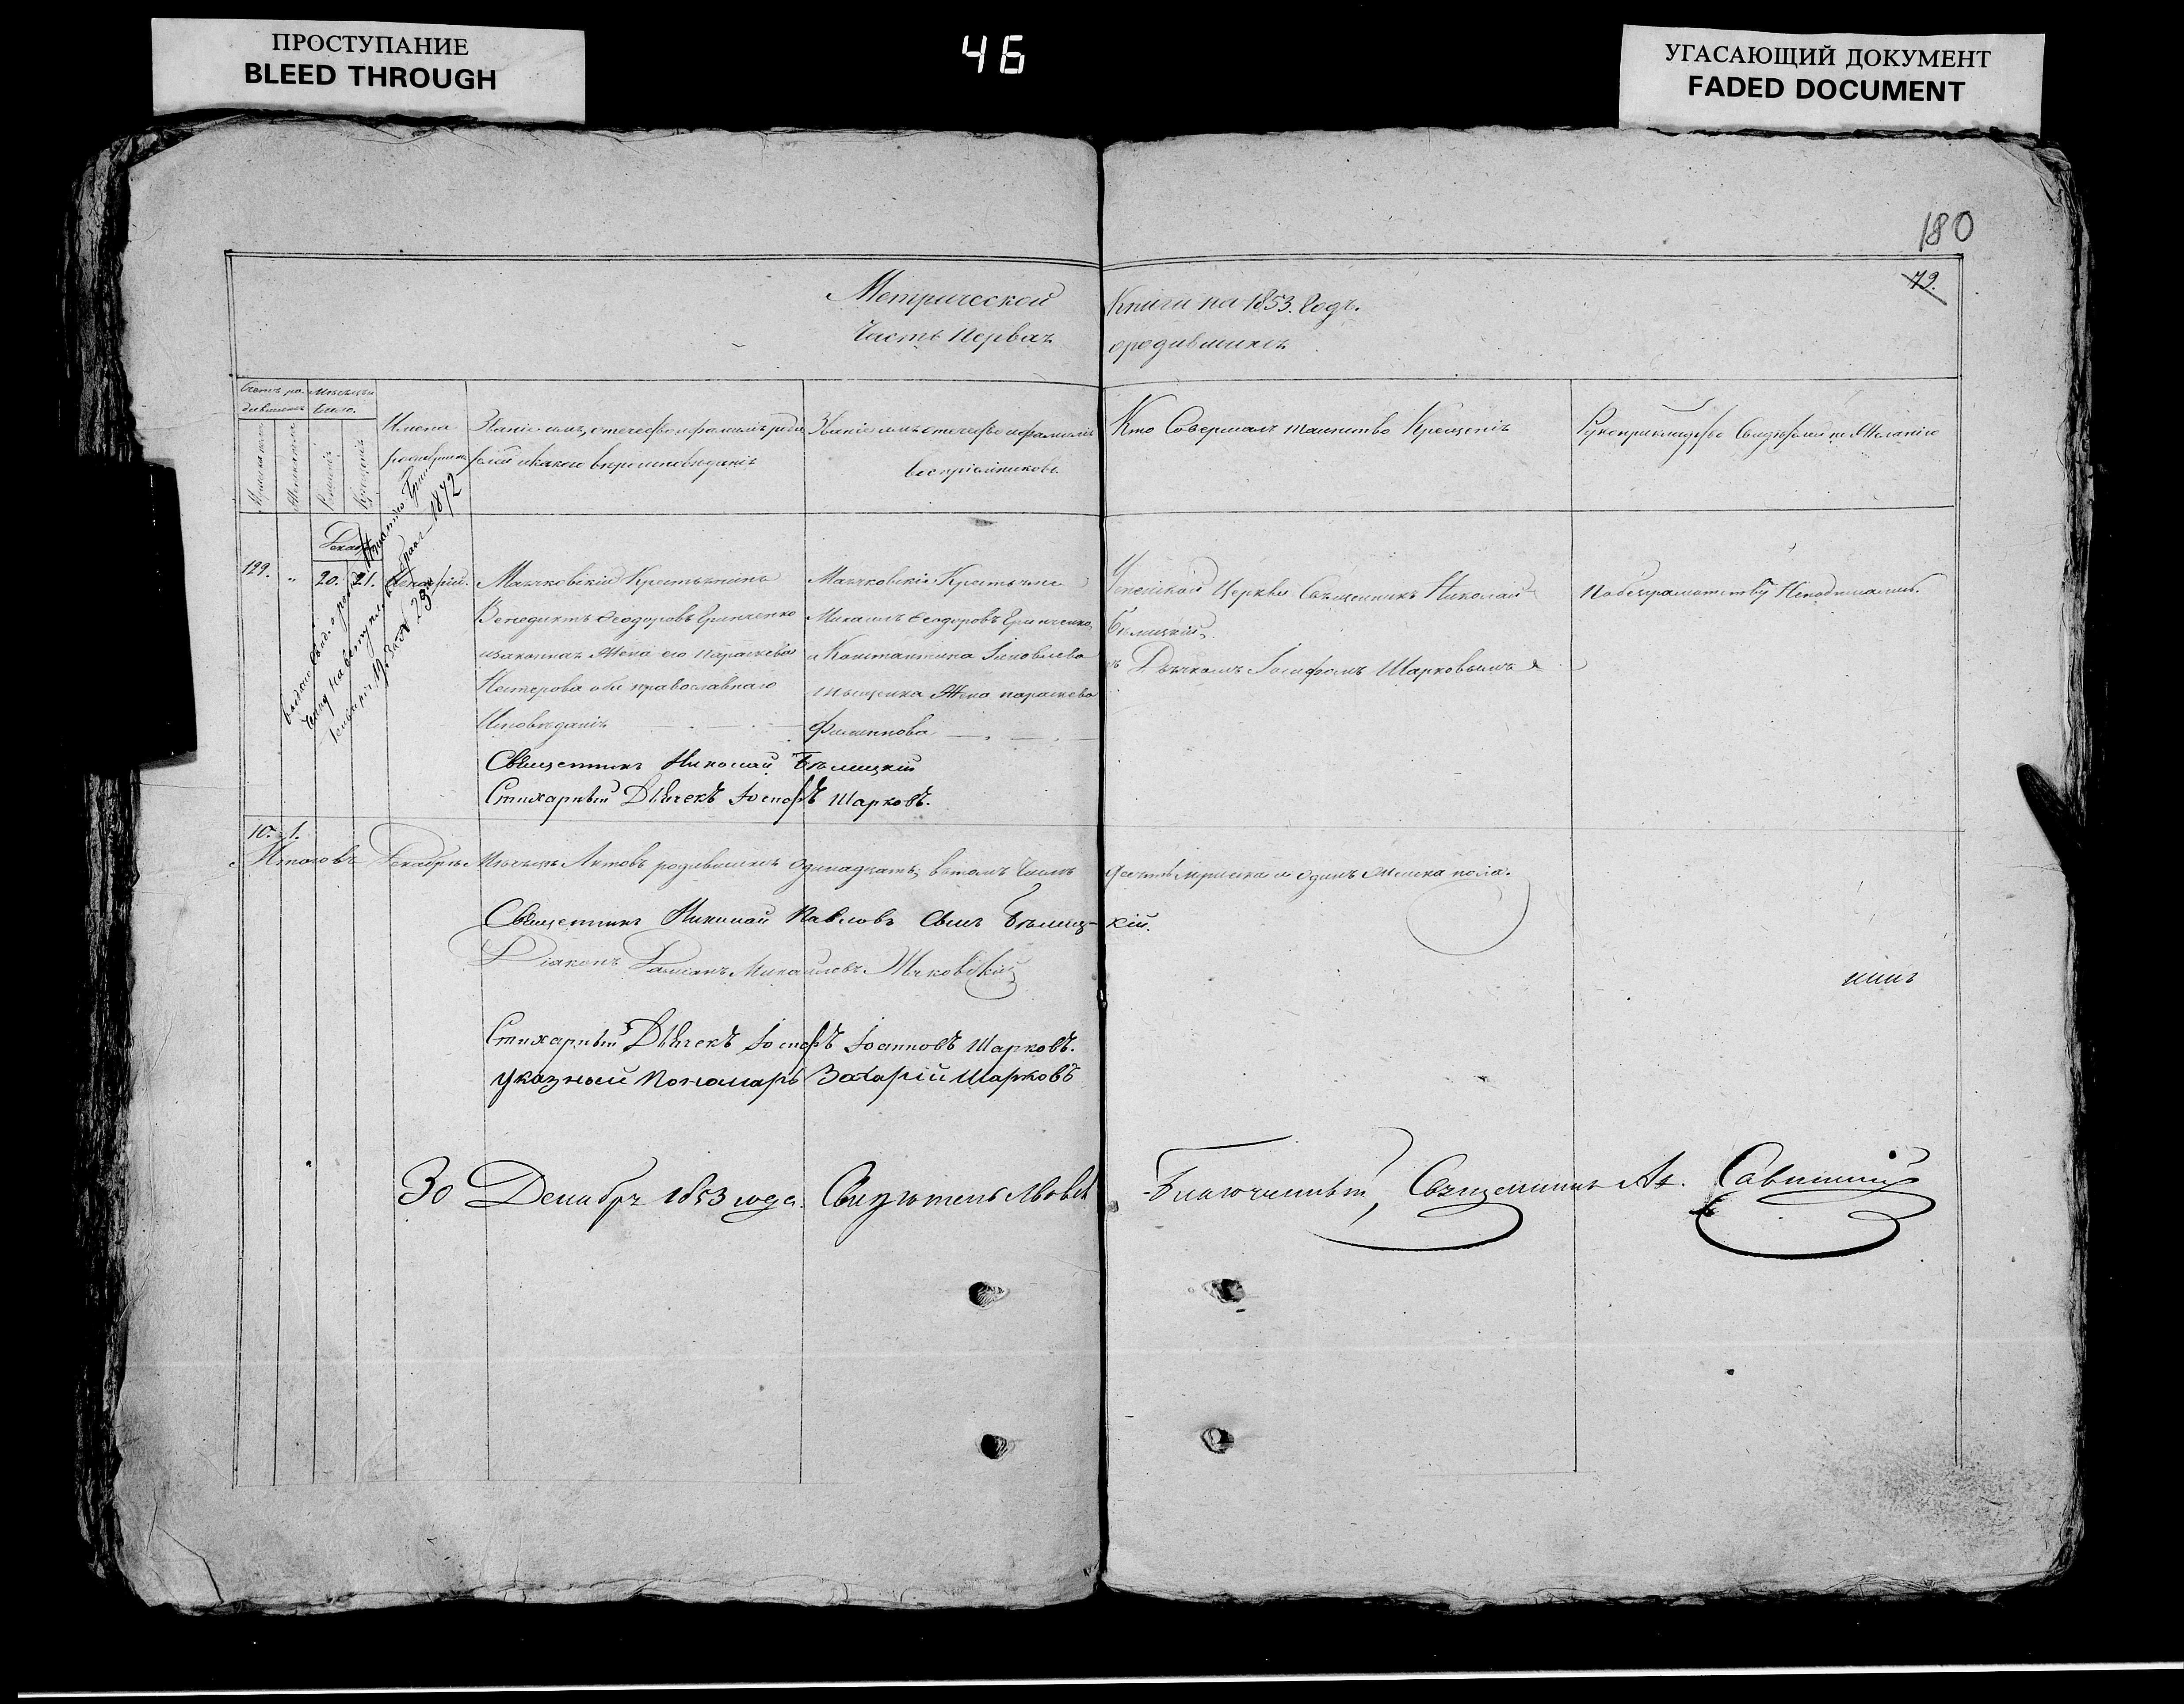 ПРОСТУПАНИЕ
BLEED THROUGH
46
УГАСАЮЩИЙ ДОКУМЕНТ
FADED DOCUMENT
180
79.
Метрической Книги на 1853. Годъ.
Часть Первая о родившихся
Счетъ ро- Мѣсяцъ и
дившихся Число.
Мужеска пола
Женска пола
Рожденія
Крещенія
Имена
родившихся
Званіе имя, отечество и фамилія роди
телей и какого вѣроисповѣданія
Званіе имя отечество и фамилія
воспріемниковъ
Кто Совершалъ таинство Крещенія
Рукоприкладство Свидѣтелей по Желанію
Декабр
129. " 20. 21.
1872
Крестьянинъ
Венедиктъ Ѳеодоровъ Гринченко
и законная Жена его Параскева
Нестерова оба православнаго
Исповѣданія
Михаилъ Ѳеодоровъ Гринченко
и Константина Іаковлева
Жена параскева
Филиппова
Успенской Церкви Священникъ Николай
Бѣлицкій
съ Дьячкомъ Іосифомъ Шарковымъ
По безграмотству Неподписались.
Священникъ Николай Бѣлицкій
Стихарный Дьячекъ Іосифъ Шарковъ.
10. 1.
Итого въ Декабрѣ Мѣсяцѣ Актовъ родившихся Одинадцать, въ томъ Числѣ десять мужеска и Одинъ Женска пола.
Священникъ Николай Павловъ Сынъ Бѣлиц-кій.
Діаконъ Даміанъ Михайловъ
Стихарный Дьячекъ Іосифъ Іоанновъ Шарковъ.
Указный Пономарь Захарій Шарковъ
30 Декабря 1853 года. Благочинный, Священникъ